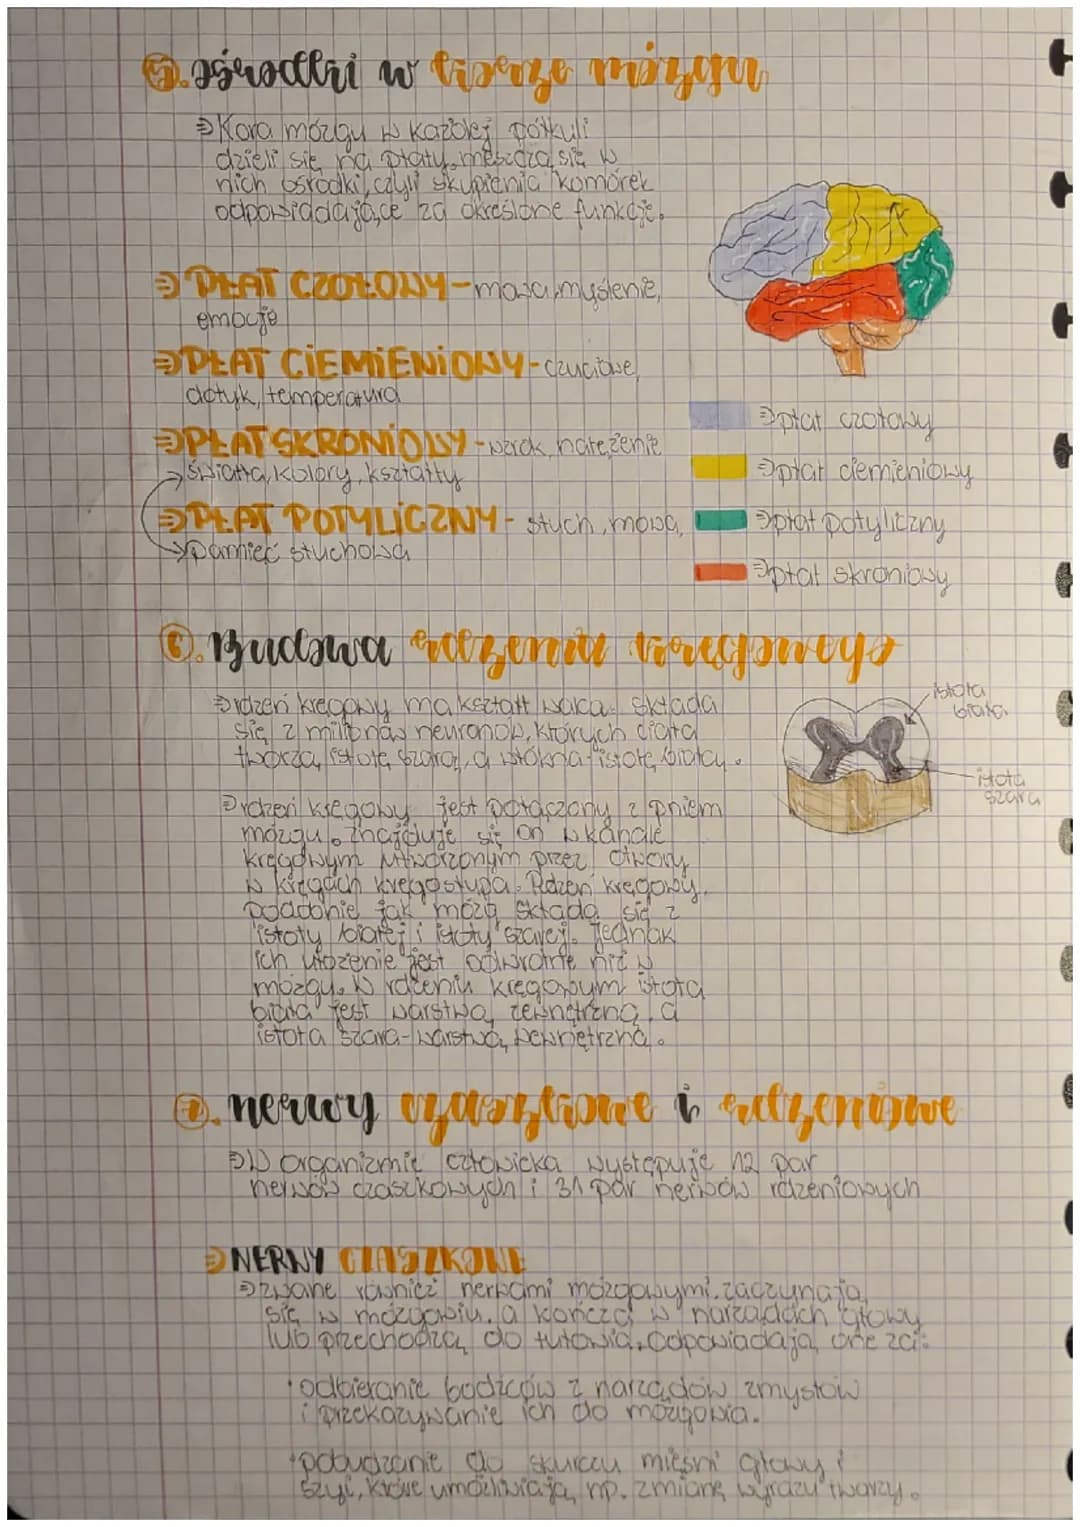 5. ośrodki w korze mózgu
Kora mózgu w każdej półkuli
dzieli się na płaty, mieszczą się w
nich ośrodki, czyli skupienia komórek
odpowiadające za określone funkcje.
PŁAT CZOŁOWY - mowa, myślenie,
emocje
PŁAT CIEMIENIOWY - czuciowe,
dotyk, temperatura
PŁAT SKRONIOWY - wzrok, natężenie
światła, kolory, kształty
PŁAT POTYLICZNY - słuch, mowa,
pamięć słuchowa
płat czołowy
płat ciemieniowy
płat potyliczny
płat skroniowy
6. Budowa rdzenia kręgowego
rdzeń kręgowy ma kształt walca. Składa
się z milionów neuronów, których ciała
tworzą istotę szarą, a włókna - istotę białą.
istota
biała
istota
szara
rdzeń kręgowy jest połączony z pniem
mózgu. Znajduje się on w kanale
kręgowym utworzonym przez otwory
w kręgach kręgosłupa. Rdzeń kręgowy,
podobnie jak mózg składa się z
istoty białej i istoty szarej. Jednak
ich ułożenie jest odwrotne niż w
mózgu. W rdzeniu kręgowym istota
biała jest warstwą zewnętrzną, a
istota szara - warstwą wewnętrzną.
7. nerwy czaszkowe i rdzeniowe
W organizmie człowieka występuje 12 par
nerwów czaszkowych i 31 par nerwów rdzeniowych
NERWY CZASZKOWE
zwane również nerwami mózgowymi, zaczynają
się w mózgowiu, a kończą w narządach głowy
lub przechodzą do tułowia. Odpowiadają one za:
• odbieranie bodźców z narządów zmysłów
i przekazywanie ich do mózgowia.
• pobudzanie do skurczu mięśni głowy i
szyi, które umożliwiają np. zmianę wyrazu twarzy.